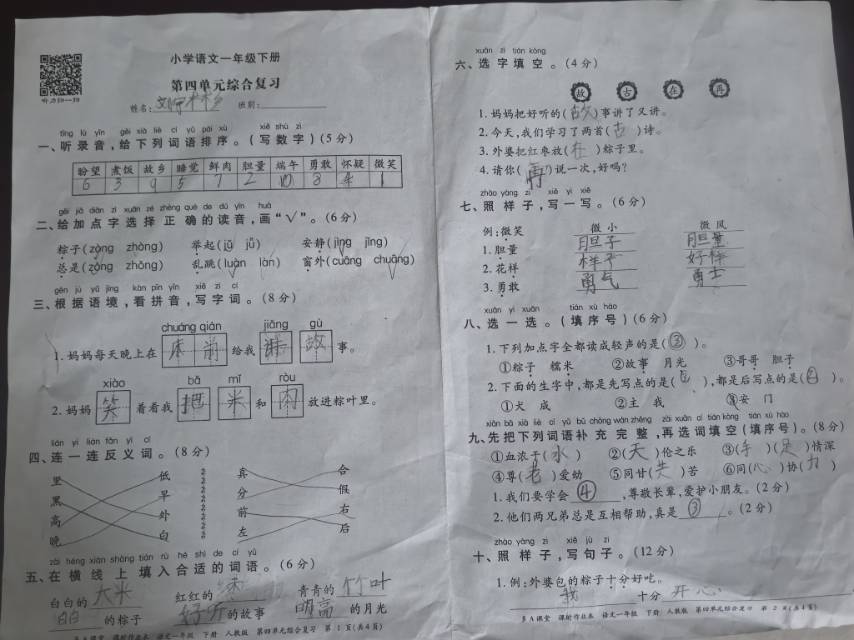 听力扫一扫
小学语文一年级下册
第四单元综合复习
姓名: 班别:
tīng lù yīn gěi xià liè cí yǔ pái xù xiě shù zì
一、听录音,给下列词语排序。(写数字)(5分)
盼望 煮饭 故乡 睡觉 鲜肉 胆量 端午 勇敢 怀疑 微笑
6 3 9 5 7 2 10 8 4 1
gěi jiā diǎn zì xuǎn zé zhèng què de dú yīn huà
二、给加点字选择正确的读音,画“√”。(6分)
粽子(zòng zhòng) 举起(jǔ jǔ) 安静(jìng jīng)
总是(zǒng zhōng) 乱跳(luàn làn) 窗外(cuāng chuāng)
gēn jù yǔ jìng kàn pīn yīn xiě zì cí
三、根据语境,看拼音,写字词。(8分)
chuáng qián jiǎng gù
1.妈妈每天晚上在 床 前 给我 讲 故 事。
xiào bǎ mǐ ròu
2.妈妈 笑 着看我 把 米 和 肉 放进粽叶里。
lián yì lián fǎn yì cí
四、连一连反义词。(8分)
里 低 真 合
黑 早 分 假
高 外 前 右
晚 白 左 后
zài héng xiàn shàng tián rù hé shì de cí yǔ
五、在横线上填入合适的词语。(6分)
白白的 大米 红红的 青青的 竹叶
的粽子 好听 的故事 明亮 的月光
多A课堂 课时作业本 语文一年级 下册 人教版 第四单元综合复习 第1页(共4页)
xuǎn zì tián kòng
六、选字填空。(4分)
故 古 在 再
1.妈妈把好听的(故)事讲了又讲。
2.今天,我们学习了两首(古)诗。
3.外婆把红枣放(在)粽子里。
4.请你(再)说一次,好吗?
zhào yàng zi xiě yì xiě
七、照样子,写一写。(6分)
例:微笑 微小 微风
1.胆量 胆子 胆量
2.花样 样子 好样
3.勇敢 勇气 勇士
xuǎn yì xuǎn tián xù hào
八、选一选。(填序号)(6分)
1.下列加点字全都读成轻声的是(③)。
①粽子 糯米 ②故事 月光 ③哥哥 胆子
2.下面的生字中,都是先写点的是( ),都是后写点的是(②)。
①犬 成 ②主 我 ③安 门
xiān bǎ xià liè cí yǔ bǔ chōng wán zhěng zài xuǎn cí tián kòng tián xù hào
九、先把下列词语补充完整,再选词填空(填序号)。(8分)
①血浓于(水) ②(天)伦之乐 ③(手)(足)情深
④尊(老)爱幼 ⑤同甘(共)苦 ⑥同(心)协(力)
1.我们要学会 ④ ,尊敬长辈,爱护小朋友。(2分)
2.他们两兄弟总是互相帮助,真是 ③ 。(2分)
zhào yàng zi xiě jù zi
十、照样子,写句子。(12分)
1.例:外婆包的粽子十分好吃。
我 十分 开心
多A课堂 课时作业本 语文一年级 下册 人教版 第四单元综合复习 第2页(共4页)